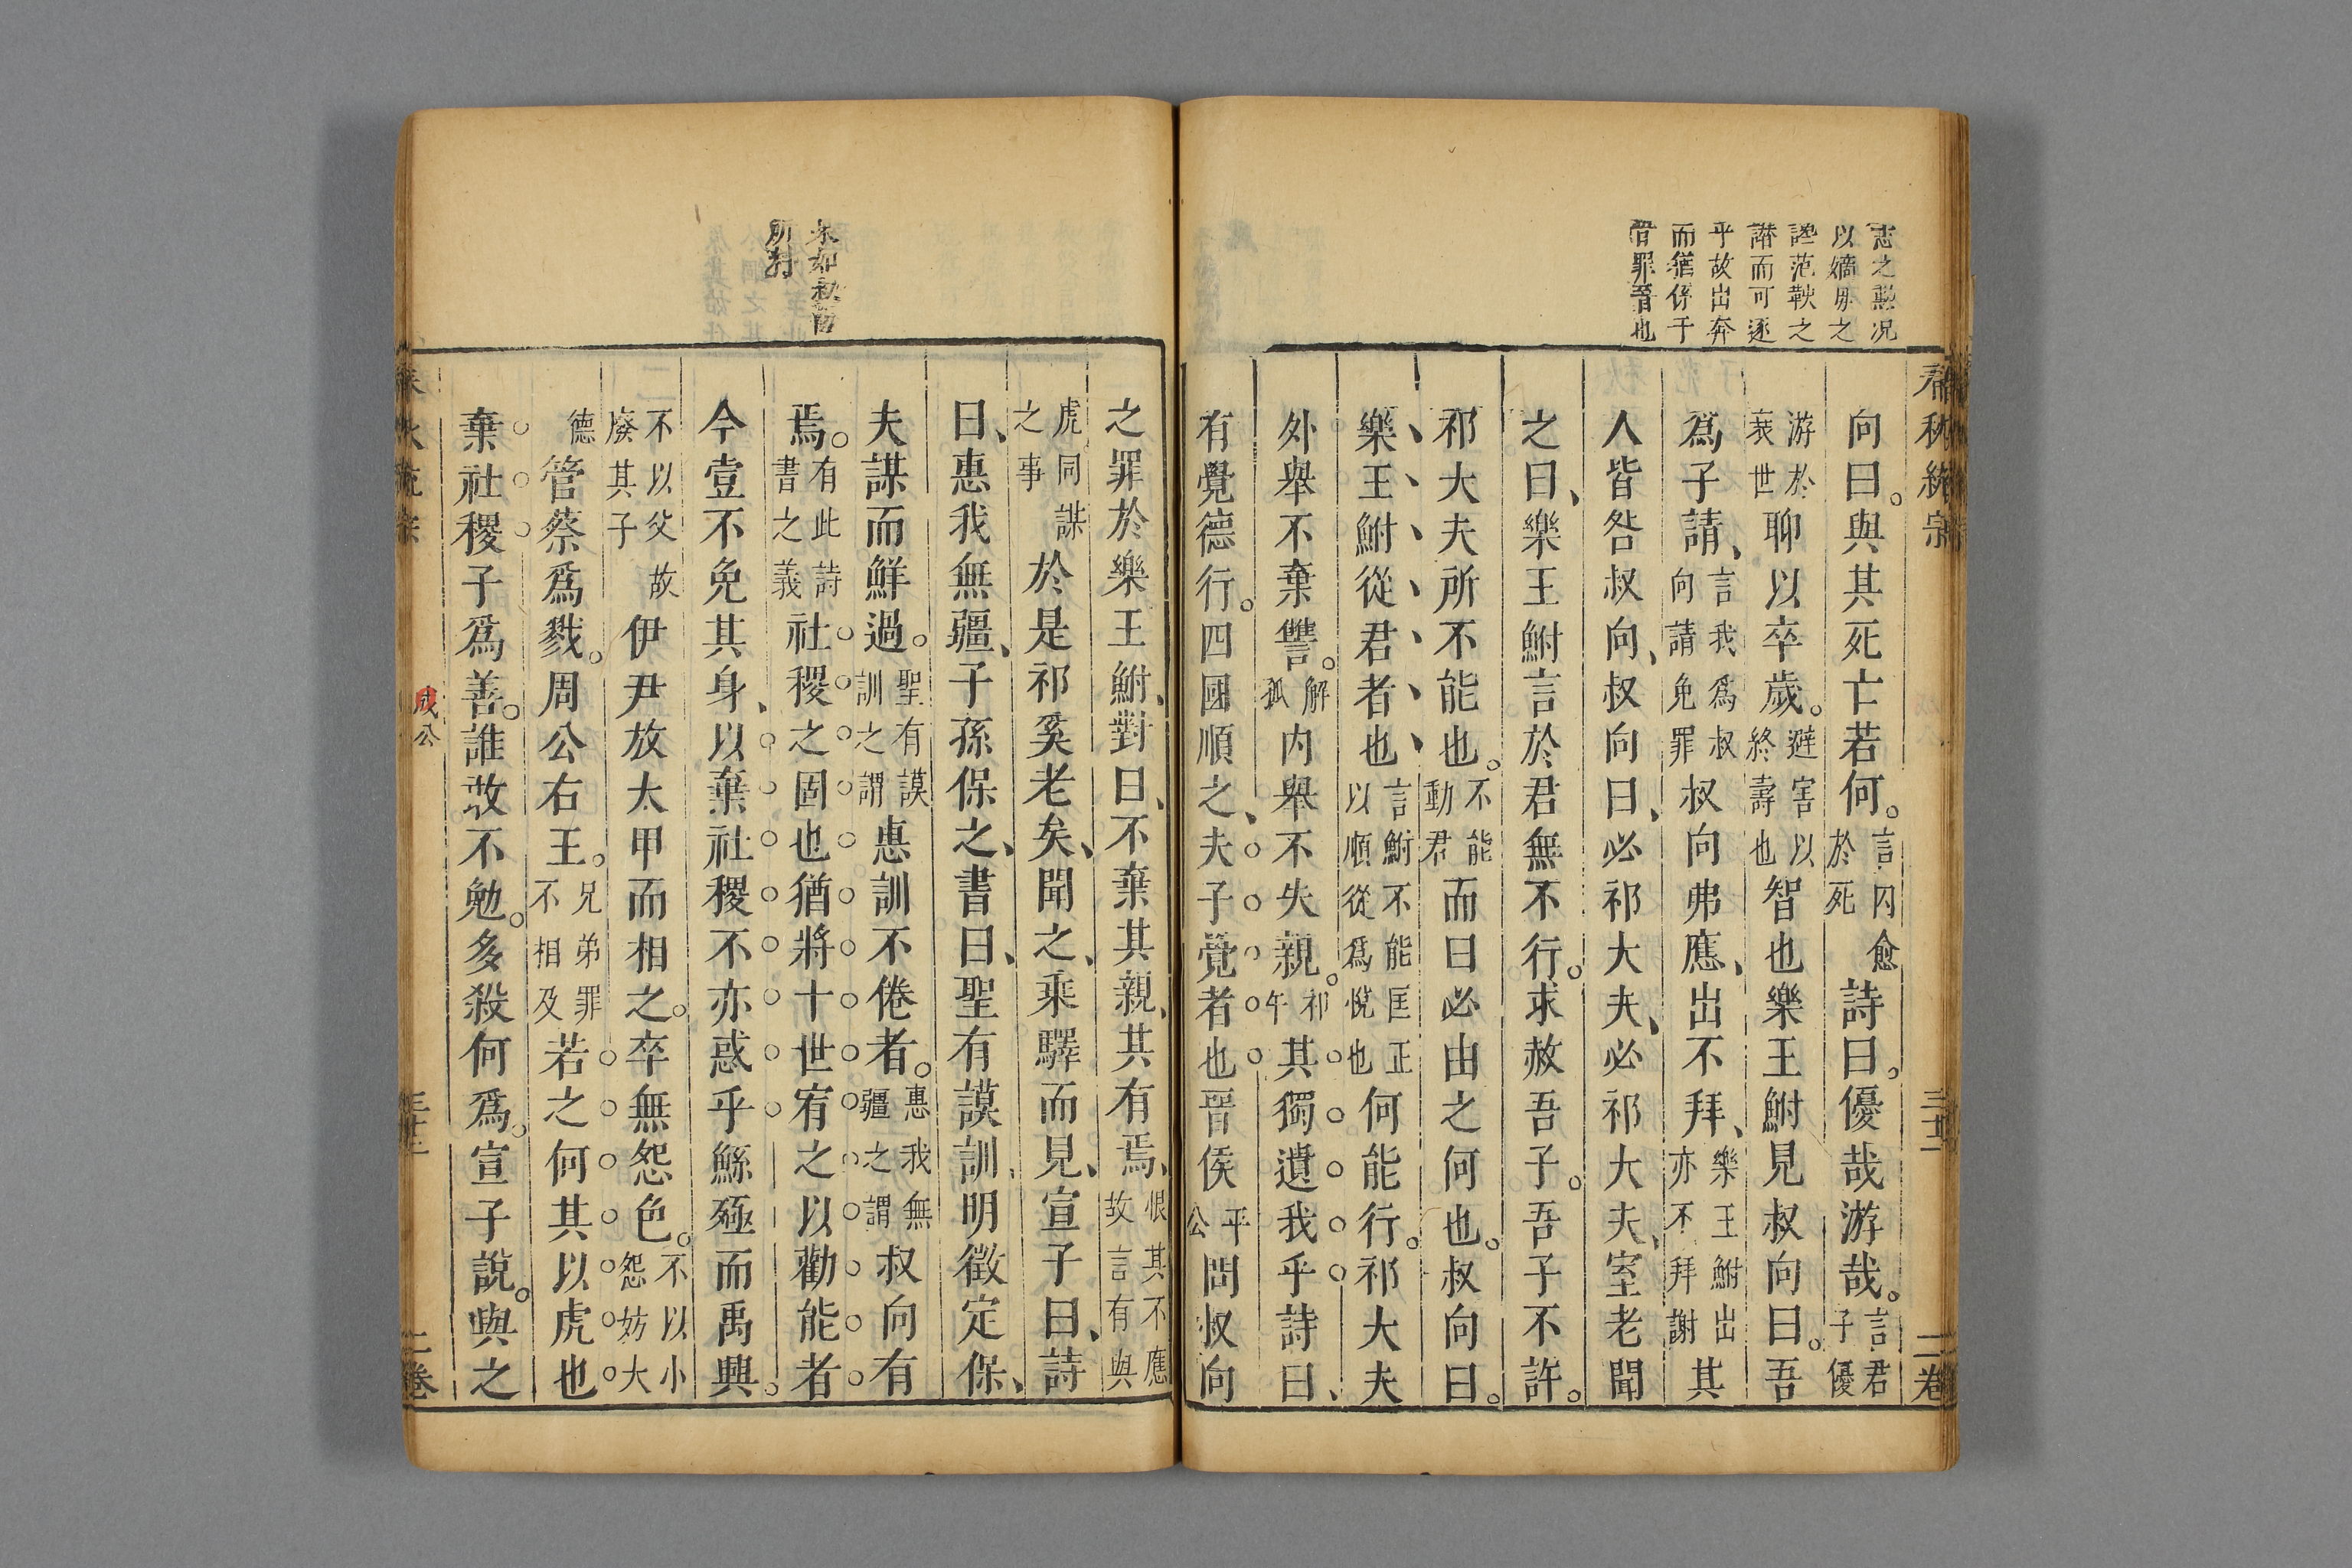 志之愬况
以嫡母之
讒范鞅之
譖而可逐
乎故出奔
而猶係于
晉罪晉也
春秋統宗
二卷
向曰與其死亡若何言囚愈於死詩曰優哉游哉言君子優
游於衰世聊以卒歲避害以終壽也智也樂王鮒見叔向曰吾
爲子請言我爲叔向請免罪叔向弗應出不拜樂王鮒出亦不拜謝其
人皆咎叔向叔向曰必祁大夫必祁大夫室老聞
之曰樂王鮒言於君無不行求赦吾子吾子不許
祁大夫所不能也不能動君而曰必由之何也叔向曰
樂王鮒從君者也言鮒不能匡正以順從爲悅也何能行祁大夫
外舉不棄讐解狐内舉不失親祁午其獨遺我乎詩曰
有覺德行四國順之夫子覺者也晉侯平公問叔向
之罪於樂王鮒對曰不棄其親其有焉恨其不應故言有與
虎同謀之事於是祁奚老矣聞之乘驛而見宣子曰詩
曰惠我無疆子孫保之書曰聖有謨訓明徵定保
夫謀而鮮過聖有謨訓之謂惠訓不倦者惠我無疆之謂叔向有
焉有此詩書之義社稷之固也猶將十世宥之以勸能者
今壹不免其身以棄社稷不亦惑乎鯀殛而禹興
不以父故廢其子伊尹放太甲而相之卒無怨色不以小怨妨大
德管蔡爲戮周公右王兄弟罪不相及若之何其以虎也
棄社稷子爲善誰敢不勉多殺何爲宣子說與之
成公
二卷